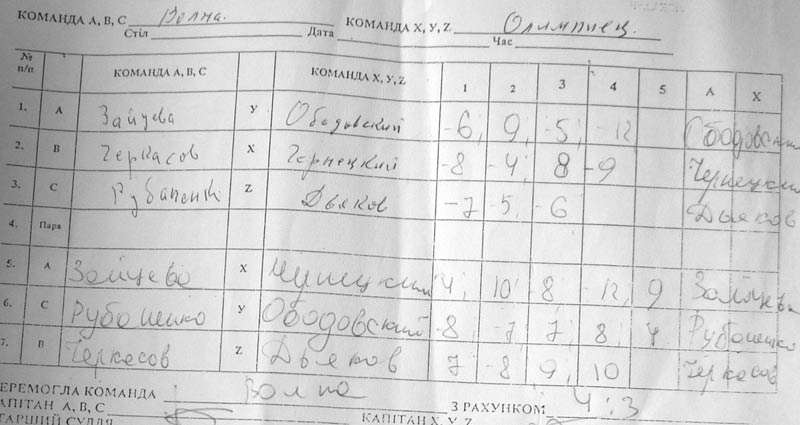 КОМАНДА А, В, С Волна. КОМАНДА Х, У, Z Олимпиец.
Стіл Дата Час
№ п/п КОМАНДА А, В, С КОМАНДА Х, У, Z 1 2 3 4 5 А Х
1. А Зайцева У Ободовский -6; 9; -5; -12 Ободовский
2. В Черкасов Х Чернецкий -8 -4; 8 -9 Чернецкий
3. С Рубаненко Z Дьяков -7 -5; -6 Дьяков
4. Пара
5. А Зайцева Х 4, 10 -8 -12, 9 Зайцева
6. С Рубоненко У Ободовский -8 -7, 7, 8, 4 Рубоненко
7. В Черкесов Z Дьяков 7 -8 9, 10 Черкесов
ПЕРЕМОГЛА КОМАНДА Волна З РАХУНКОМ 4:3
КАПІТАН А, В, С КАПІТАН Х, У, Z
СТАРШИЙ СУДДЯ